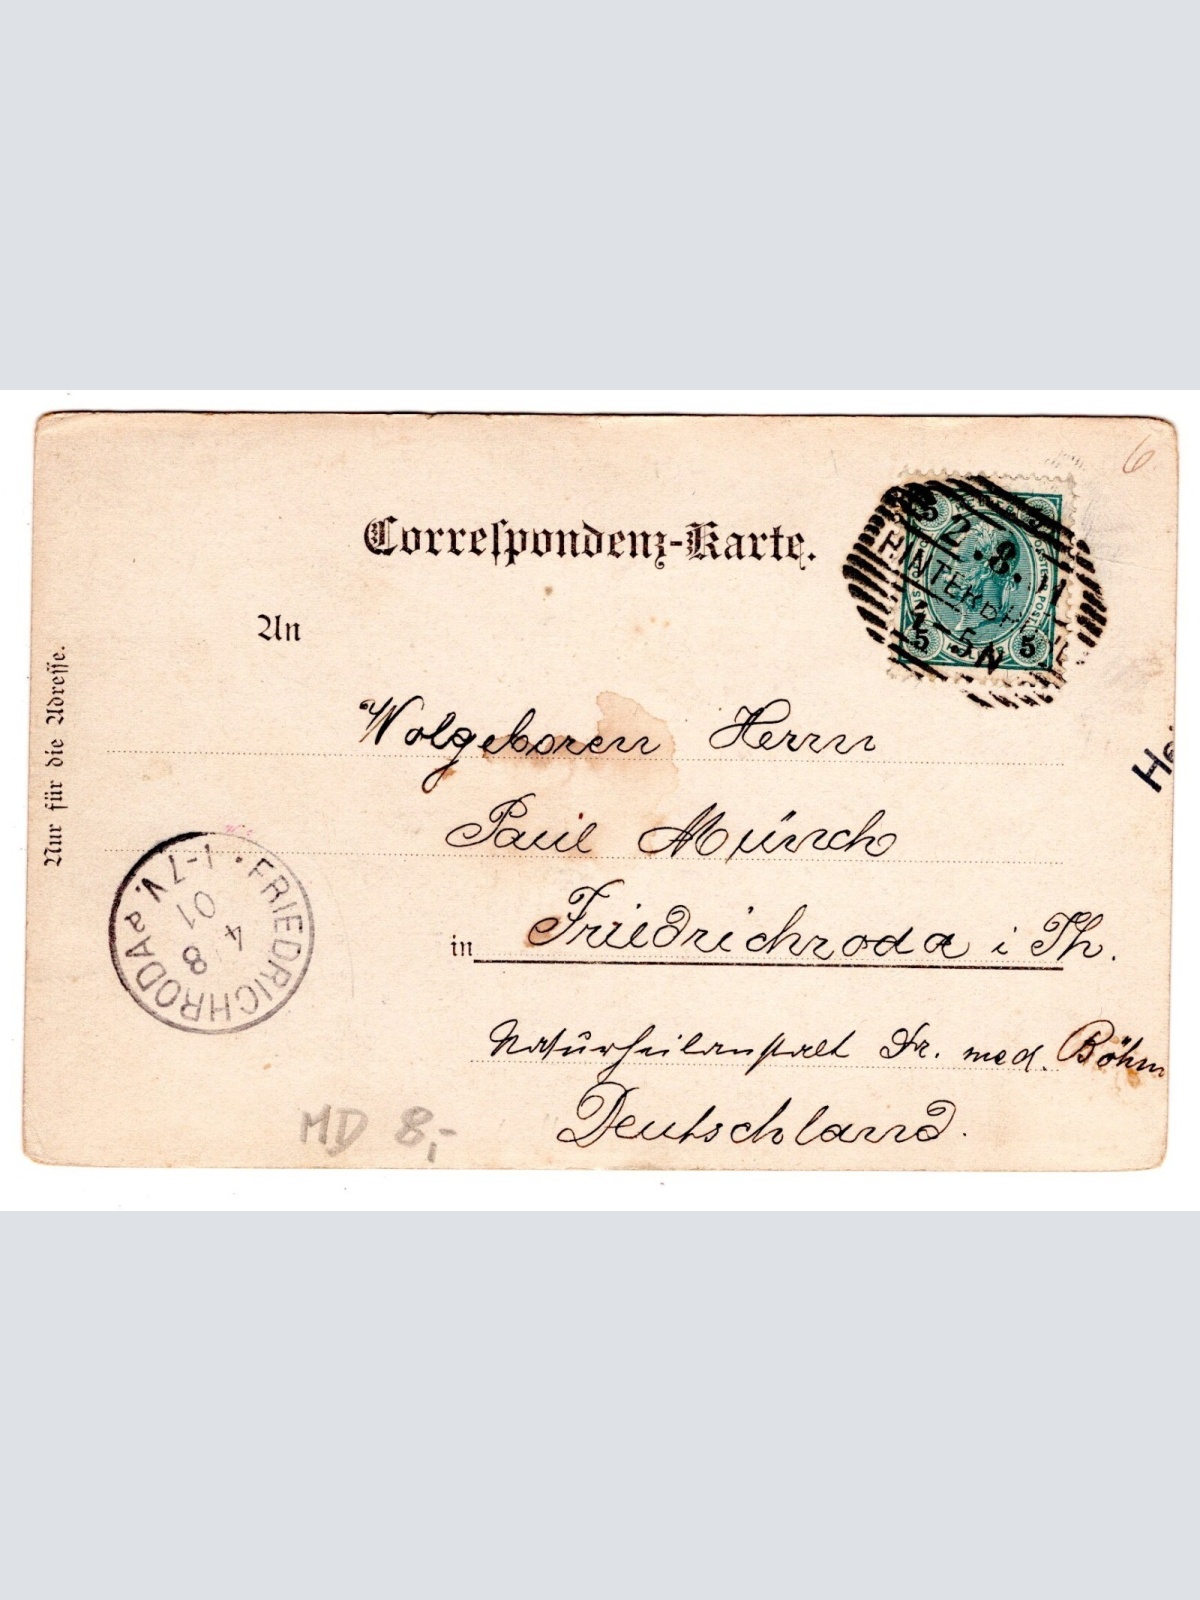 6
Correspondenz-Karte.
An
Nur für die Adresse.
2.8.
5 N
5
5
5
Wolgeboren Herrn
Paul Münch
in Friedrichroda i Th.
Naturheilanstalt Dr. med. Böhm
Deutschland.
FRIEDRICHRODA
1-7 V.
4 8
01
MD 8,-